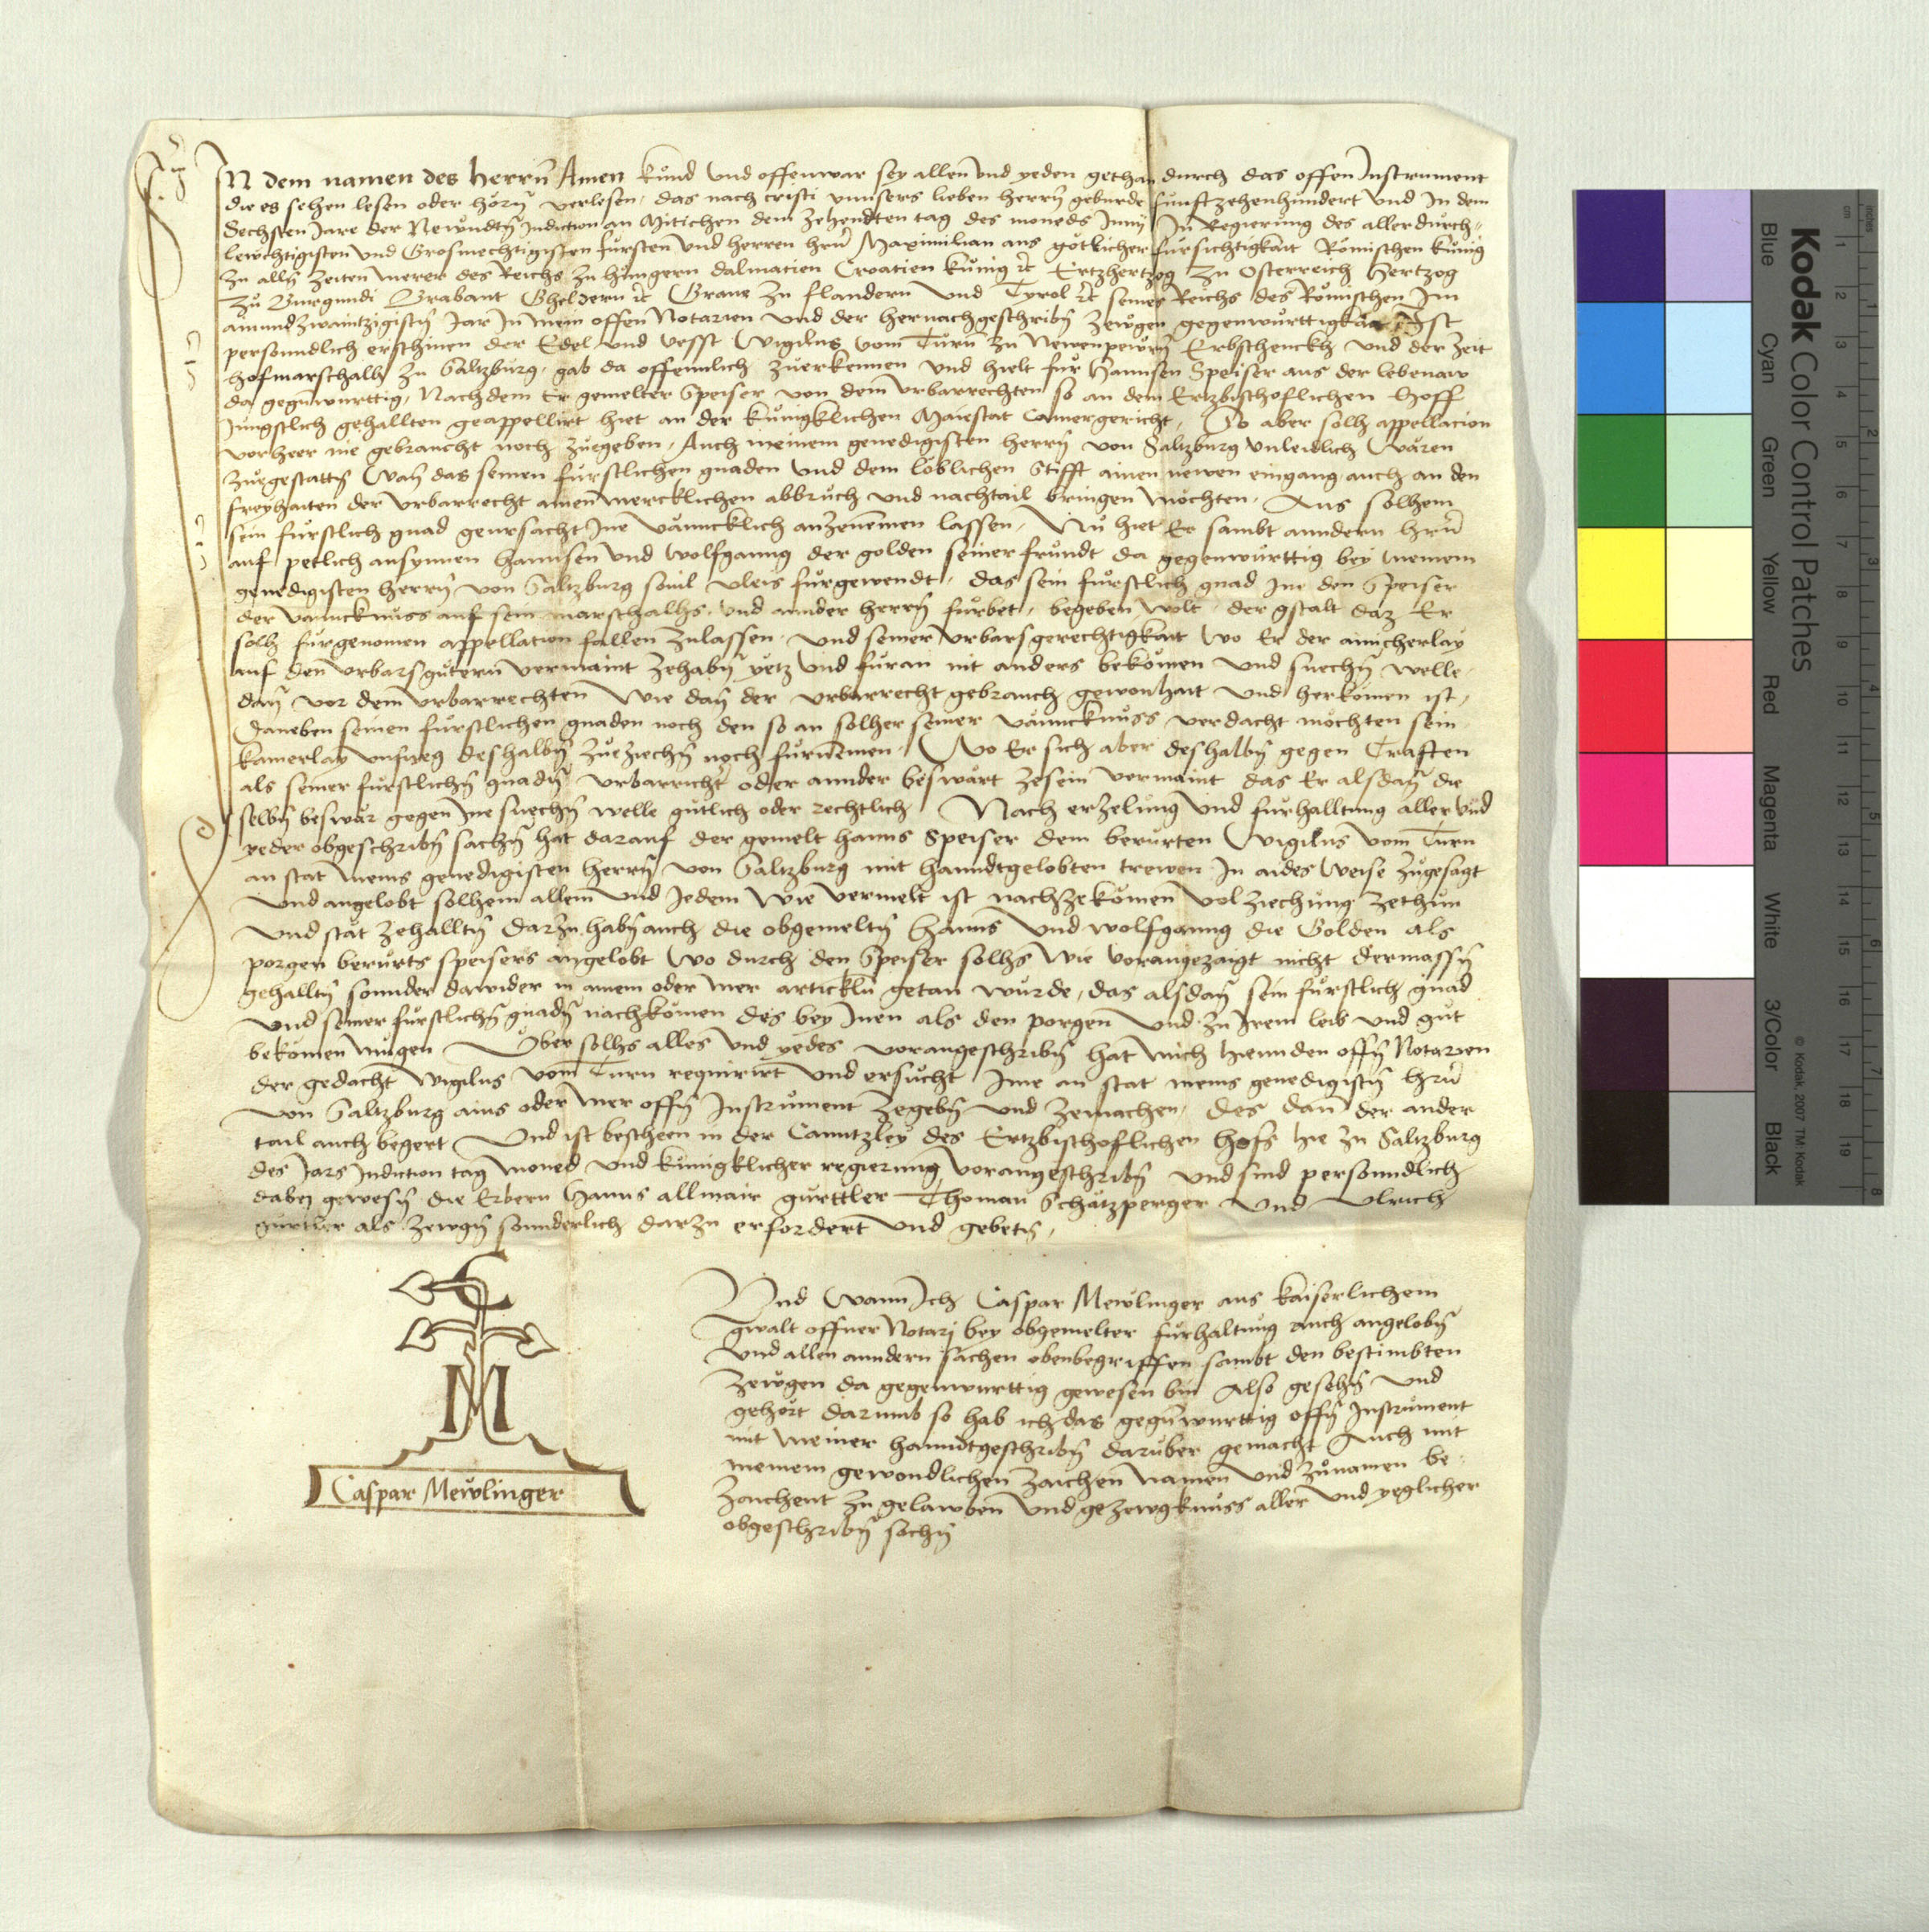 IN dem namen des herrn̄ Amen kůnd vnd offenwar sey allen vnd yeden gethan durch das offen Instrument
die es sehen lesen oder hörn̄ verlesen, das nach cristi vnnsers lieben herrn̄ geburde fünftzehenhundert vnd in dem
Sechsten Jare der Newndtn̄ Indiction an Mitichen dem zehendten tag des moneds Junij In Regierung des allerdurch-
lewchtigisten vnd Grosmechtigisten fürsten vnd herren hrn̄ Maximilian aus götlicher fürsichtigkait Römischen künig
zu alln̄ zeiten merer des Reichs zu hungern dalmatien Croatien künig ꝛc Ertzhertzog zu Osterreich Hertzog
zů Burgundi Brabant Gheldern ꝛc Graue zu flandern vnd Tyrol ꝛc seiner Reichs des Römischen Im
ainundzwaintzigistn̄ Jar In mein offen Notarien vnd der hernachgeschribn̄ zewgen gegenwürttigkait Ist
personndlich erschinen der Edel vnd vesst Vigilius vom Turn zu Newenpewrn̄ Erbschenckh vnd der zeit
hofmarschalh zu Saltzburg, gab da offennlich zuerkennen vnd hielt für Hannsen Speiser aus der lebenaw
da gegnwurttig, Nachdem Er gemelter Speiser von dem vrbarrechten so an dem Ertzbischoflichen Hoff
Jungstlich gehallten geappellirt hiet an der künigklichen Maiestat Camergericht, So aber solh appellacion
vorheer nie gebraucht noch zuegeben, Auch meinem genedigisten herrn̄ von Saltzburg vnleidlich wären
zuegestattn̄ Wan̄ das seinen fürstlichen gnaden vnd dem löblichen Stifft ainen newen eingang auch an den
freyhaiten der vrbarrecht ainen mercklichen abbruch vnd nachtail bringen möchten. Aus solhem
sein fürstlich gnad geursacht Ine vänncklich anzenemen lassen, Nů hiet Er sambt anndern hrn̄
auf petlich ansynnen Hannsen vnd Wolfganng der golden seiner frundt da gegenwürttig bey meinem
genedigisten herrn̄ von Saltzburg souil vleis fürgewendt, das sein fürstlich gnad Ine den Speiser
der vanncknuss auf sein marschalhs vnd annder herrn̄ fürbet, begeben wolt, der gstalt daz Er
solh furgenomen appellation fallen zulassen, vnd seiner vrbarsgerechtigkait wo Er der ainicherlay
auf den vrbarsgütern vermaint zehabn̄ yetz vnd füran nit anders bekömen vnd suechn̄ welle,
dan̄ vor dem vrbarrechten wie dan̄ der vrbarrecht gebrauch gewonhait vnd herkömen ist,
Daneben seinen fürstlichen gnaden noch den so an solher seiner vänncknuss verdacht möchten sein
kainerlay vnfueg deshalbn̄ zueziechn̄ noch fürnemen, Wo Er sich aber deshalbn̄ gegen Trafften
als seiner fürstlichn̄ gnadn̄ vrbarricht oder annder beswärt zesein vermaint das Er alsdan̄ die
selbn̄ beswär gegen Ine suechn̄ welle gütlich oder rechtlich Nach erzelung vnd fürhalltung aller vnd
yeder obgeschribn̄ sachn̄ hat darauf der gemelt hanns Speiser dem berürten Vigilius vom Turn
an stat meins genedigisten herrn̄ von Saltzburg mit hanndtgelobten trewen In aides weise zugesagt
vnd angelobt solhem allem vnd Jedem wie vermelt ist nachzekömen volziechung zethun
vnd stät zehalltn̄ darzu habn̄ auch die obgemeltn̄ Hanns vnd wolfganng die Golden als
porgen berürts speisers angelobt wo durch den Speiser solhs wie vorangezaigt nicht dermassn̄
gehalltn̄ sonnder dawider in ainem oder mer artickln̄ getan wurde, das alsdan̄ sein fürstlich gnad
vnd seiner fürstlichn̄ gnadn̄ nachkömen des bey Inen als den porgen vnd zu Irem leib vnd gut
bekömen mügen Über solhs alles vnd yedes vorangeschribn̄ hat mich hieunden offn̄ Notarien
der gedacht Vigilius vom Turn requirirt vnd ersucht Ime an stat meins genedigistn̄ hrn̄
von Saltzburg ains oder mer offn̄ Instrument zegebn̄ vnd zemachen, des dan̄ der ander
tail auch begert Vnd ist bescheen in der Canntzley des Ertzbischoflichen hofs hie zu Saltzburg
des Jars Indiction tag moned vnd künigklicher regierung vorangeschribn̄ vnd sind personndlich
dabey gewesn̄ die Erbern Hanns allmair gürttler Thoman Schätzperger vnd Vlrich
gürtler als zewgn̄ sonnderlich darzu erfordert vnd gebetn̄,
Vnd Wann Ich Caspar Mewlinger aus kaiserlichem
gwalt offner Notarj bey obgemelter fürhaltung auch angelobn̄
vnd allen anndern sachen obenbegriffen sambt den bestimbten
zewgen da gegenwurttig gewesen bin Also gesehn̄ vnd
gehört darumb so hab ich das gegnwurttig offn̄ Instrument
mit meiner hanndtgeschribn̄ darüber gemacht Auch mit
meinem gewondlichen zaichen namen vnd zůnamen be-
zaichent zu gelawben vnd gezewgknuss aller vnd yeglicher
obgeschribn̄ sachn̄
M
Caspar Mewlinger
Kodak Color Control Patches
Blue Cyan Green Yellow Red Magenta White 3/Color Black
© Kodak, 2007 ™ Kodak
inches 1 2 3 4 5 6 7 8
cm 1 2 3 4 5 6 7 8 9 10 11 12 13 14 15 16 17 18 19